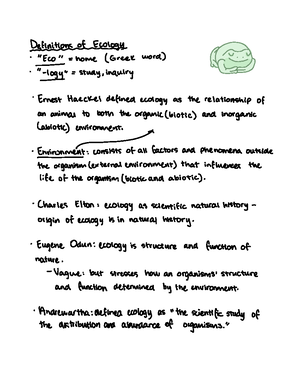 Definitions of Ecology
· "Eco" = home (Greek word)
· "-logy" = study, inquiry
· Ernest Haeckel defined ecology as the relationship of
an animal to both the organic (biotic) and inorganic
(abiotic) environment.
· Environment: consists of all factors and phenomena outside
the organism (external environment) that influences the
life of the organism (biotic and abiotic).
· Charles Elton: ecology as scientific natural history -
origin of ecology is in natural history.
· Eugene Odum: ecology is structure and function of
nature.
- Vague: but stresses how an organisms' structure
and function determined by the environment.
· Andrewartha: defined ecology as "the scientific study of
the distribution and abundance of organisms."